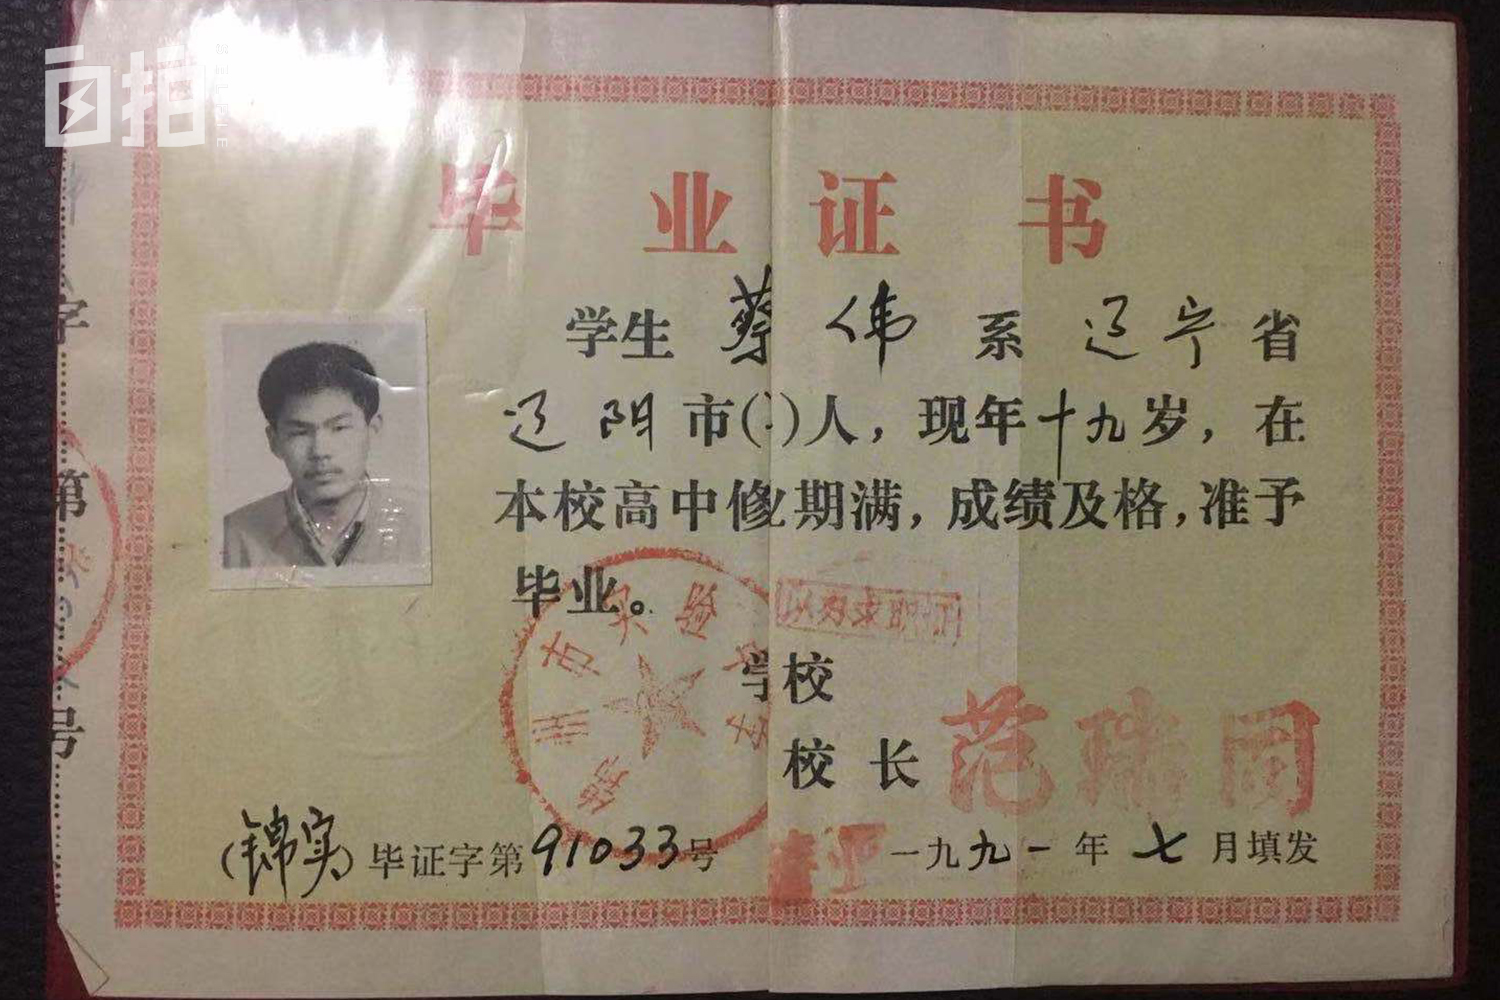 自拍
毕业证书
学生 蔡伟 系 辽宁 省
辽阳 市( )人，现年十九岁，在
本校高中修业期满，成绩及格，准予
毕业。
锦州市实验
以为求职
学校
校长 范瑞同
(锦实)毕证字第91033号
一九九一年七月填发
字
第
号